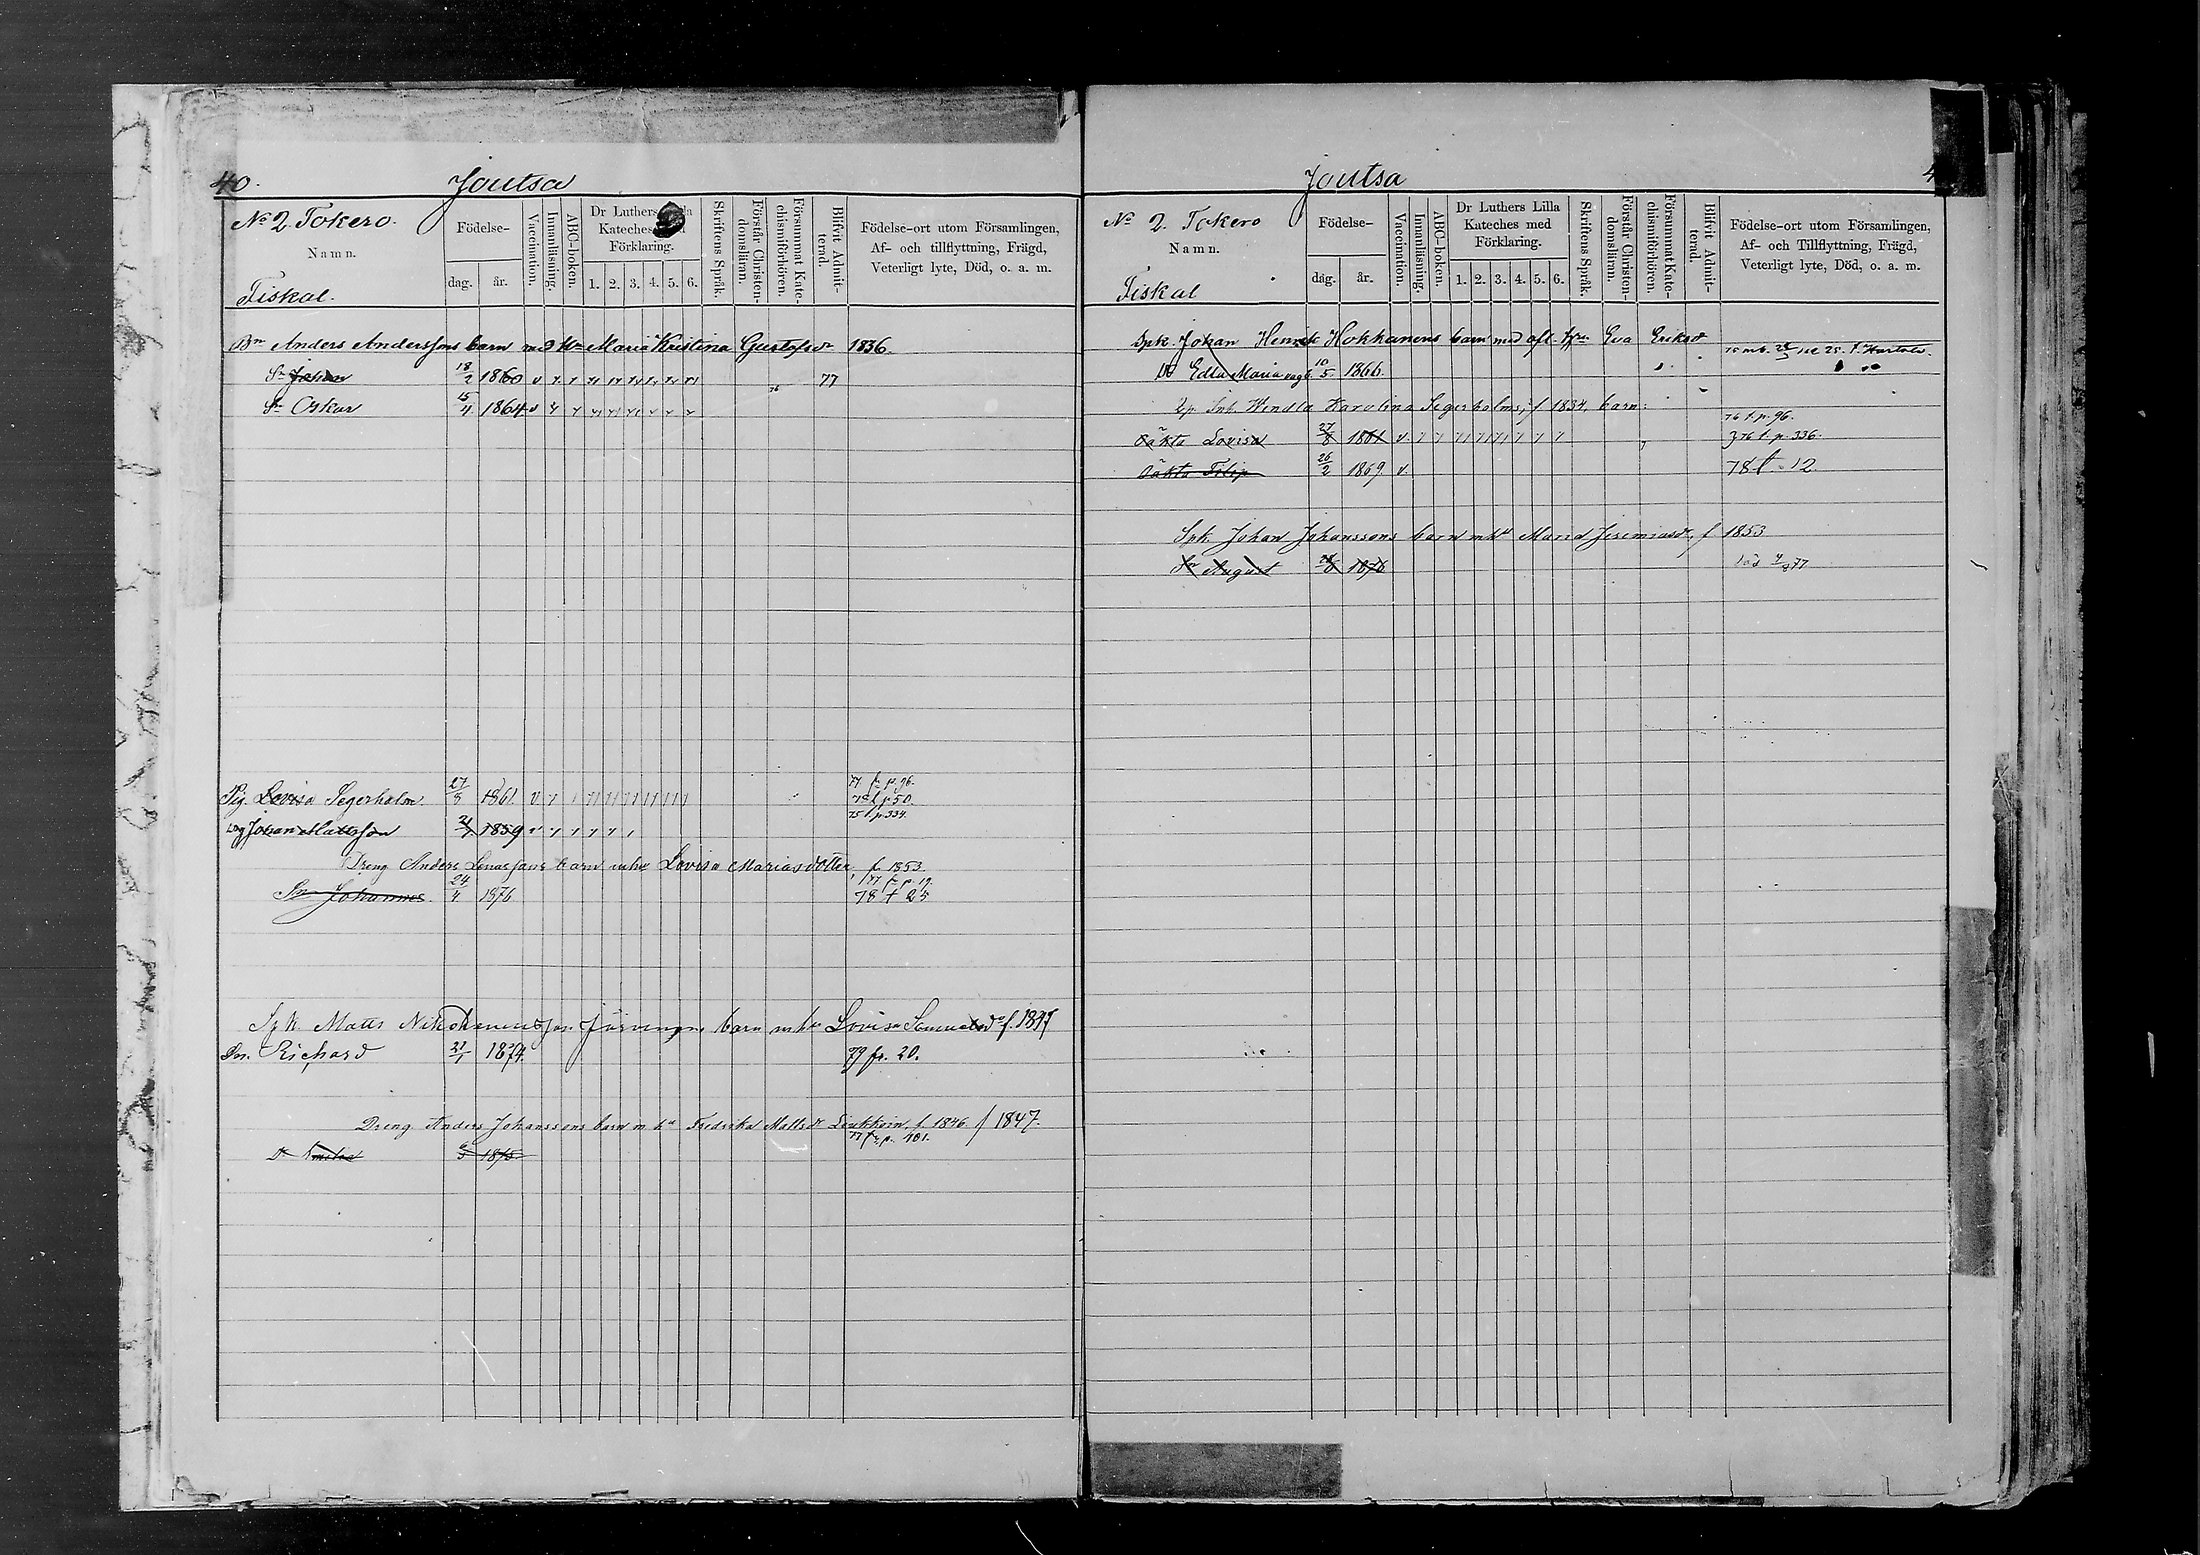 40.
Joutsa
No 2 Tokero.
Namn.
Fiskal.
Födelse-
dag.
år.
Vaccination.
Innanläsning.
ABC-boken.
Dr Luthers Lilla
Kateches med
Förklaring.
1. 2. 3. 4. 5. 6.
Skriftens Språk.
Förstår Christen-
domsläran.
Försummat Kate-
chismiförhören.
Blifvit Admit-
terad.
Födelse-ort utom Församlingen,
Af- och tillflyttning, Frägd,
Veterligt lyte, Död, o. a. m.
Bn Anders Anderssons barn md Hu Maria Kristina Gustafsdr 1836.
Sn Johan 18/2 1860 77
Sn Oskar 15/4 1864
77 fr p. 96.
Pig. Lovisa Segerholm 27/8 1861 78 t p 50.
75 t. p. 334.
Johan Mattsson 1859
Dreng Anders barn mhu Lovisa Mariasdotter, f. 1853.
177 fr p. 19.
Sn Johannes. 24/4 1876 78 t 25
Spk. Matts barn mhu Lovisa Samuelsdr f. 1847
Sn. Richard 21/1 1874. 79 fr. 20.
Dreng Anders Johanssons barn m ha Fredrika Mattsdr f. 1846. f 1847.
77 fr p. 101.
Dr 6/5 1875
Joutsa
No 2. Tokero
Namn.
Fiskal
Födelse-
dag.
år.
Vaccination.
Innanläsning.
ABC-boken.
Dr Luthers Lilla
Kateches med
Förklaring.
1. 2. 3. 4. 5. 6.
Skriftens Språk.
Förstår Christen-
domsläran.
Försummat Kate-
chismiförhören.
Blifvit Admit-
terad.
Födelse-ort utom Församlingen,
Af- och Tillflyttning, Frägd,
Veterligt lyte, Död, o. a. m.
Spk. Johan Henrik Hokkanens barn med afl. Hu Eva Eriksdr
Edla Maria 10/5 1866.
Inh. Wendla Karolina Segerholms, f 1834, barn:
76 t. p. 96.
Oäkta Lovisa 27/8 1861 v. 376 t. p. 336.
Oäkta Filip 26/2 1869 v. 78 t 12.
Spk. Johan Johanssons barn mhu Maria Jeremiasdr, f 1853
Sn August 1876 död 77